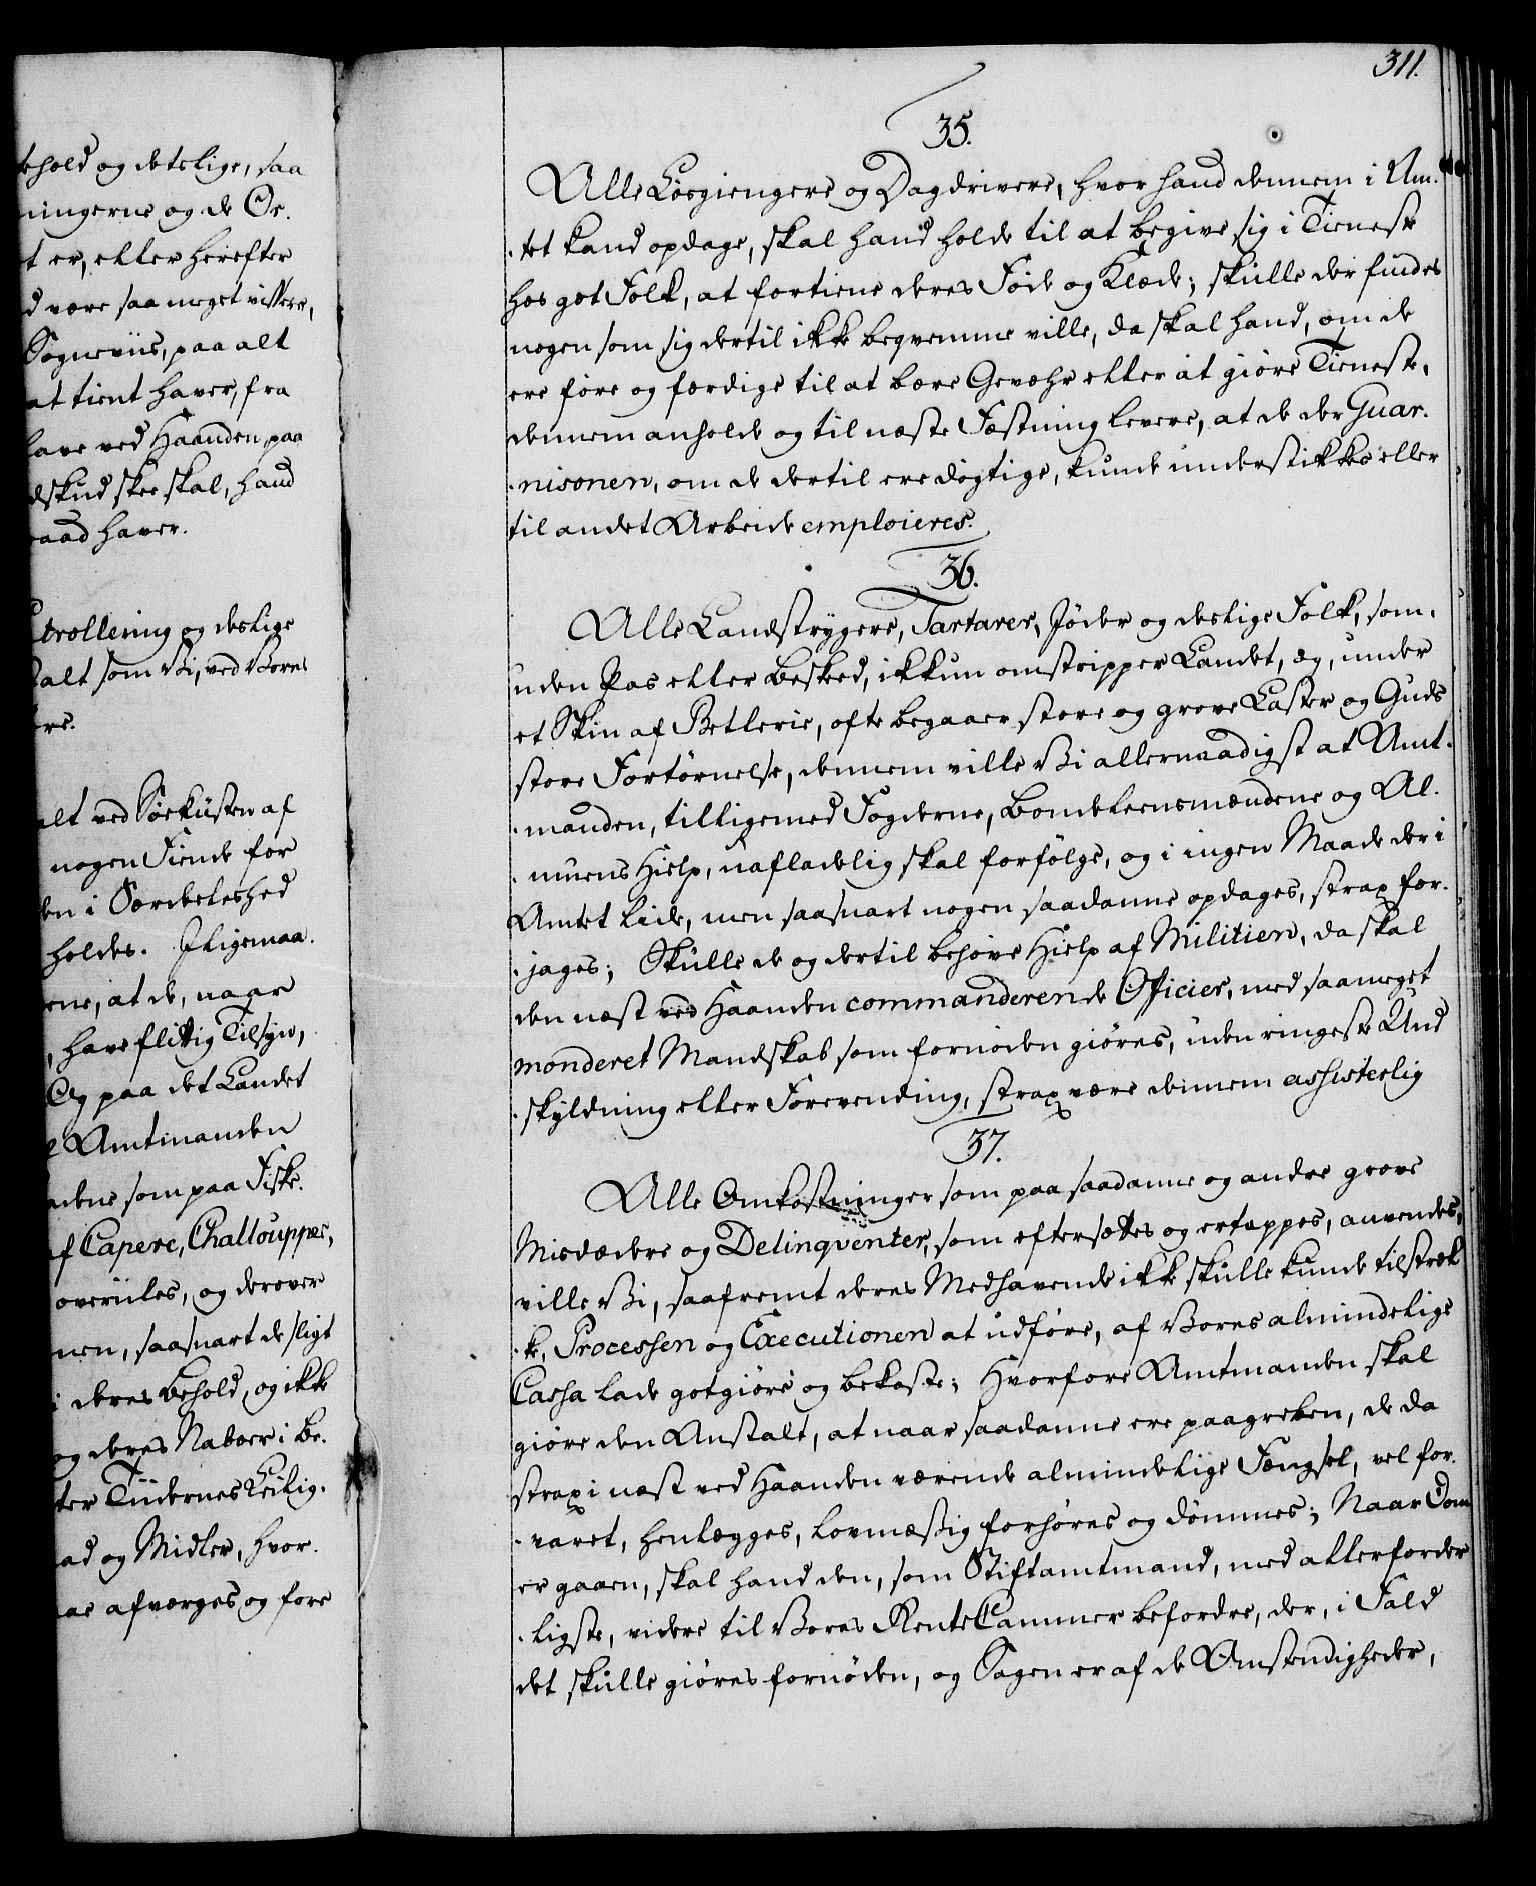 ehold og deslige, saa
ningerne og de Or-
t er, eller herefter
d være saa meget vissere,
Sogneviis, paa alt
at tient haver, fra
have ved Haanden paa
dskud skee skal, hand
raad haver.
trollering og deslige
alt som Vi, ved Vores
ere.
alt ved Søeküsten af
nogen Fiende for
den i Særdeleshed
holdes. Iligemaa-
erne, at de, naar
, have flittig Tilsyn,
Og paa det Landet
Amtmanden
adene som paa Fiske-
af Capere, Challouppes,
overiiles, og derover
men, saasnart de sligt
i deres Behold, og ikke
og deres Naboer i Be-
ter Tiidernes Leilig-
ad og Midler, hvor-
ae afværges og fore
311.
35.
Alle Løsgiengere og Dagdrivere, hvor hand dennem i Am-
-tet kand opdage, skal hand holde til at begive sig i Tieneste
hos got Folk, at fortiene deres Føde og Klæde; skulle der findes
nogen som sig dertil ikke beqvemme ville, da skal hand, om de
ere føre og færdige til at bære Gevæhr eller at giøre Tieneste,
dennem anholde og til næste Fæstning levere, at de der Guar-
-nisonen, om de dertil ere dygtige, kunde understikkes eller
til andet Arbeide emploieres.
36.
Alle Landstrygere, Tartarer, Jøder og deslige Folk, som,
uden Pas eller Besked, ikkun omstripper Landet, og, under
et Skin af Betlerie, ofte begaaer store og grove Laster og Guds
store Fortørnelse, dennem ville Vi allernaadigst at Amt-
-manden, tilligemed Fogderne, Bondelensmændene og Al-
-muens Hielp, uafladelig skal forfølge, og i ingen Maade der i
Amtet lide, men saasnart nogen saadanne opdages, strax for-
-jages; Skulle de og dertil behøve Hielp af Militien, da skal
den næst ved Haanden commanderende Officier, med saameget
monderet Mandskab som fornøden giøres, uden ringeste Und
-skyldning eller Forevending, strax være dennem assisteerlig
37.
Alle Omkostninger som paa saadanne og andre grove
Misdædere og Delinqventer, som eftersættes og ertappes, anvendes,
ville Vi, saafremt deres Medhavende ikke skulle kunde tilstræk
-ke, Processen og Executionen at udføre, af Vores almindelige
Cassa lade gotgiøre og bekoste; Hvorfore Amtmanden skal
giøre den Anstalt, at naar saadanne ere paagreben, de da
strax i næst ved Haanden værende almindelige Fængsel, vel for-
-varet, henlegges, lovmæssig forhøres og dømmes; Naar Dom
er gaaen, skal hand den, som Stiftamtmand, med allerforder
-ligste, videre til Vores RenteCammer befordre, der, i Fald
det skulle giøres fornøden, og Sagen er af de Omstendigheder,